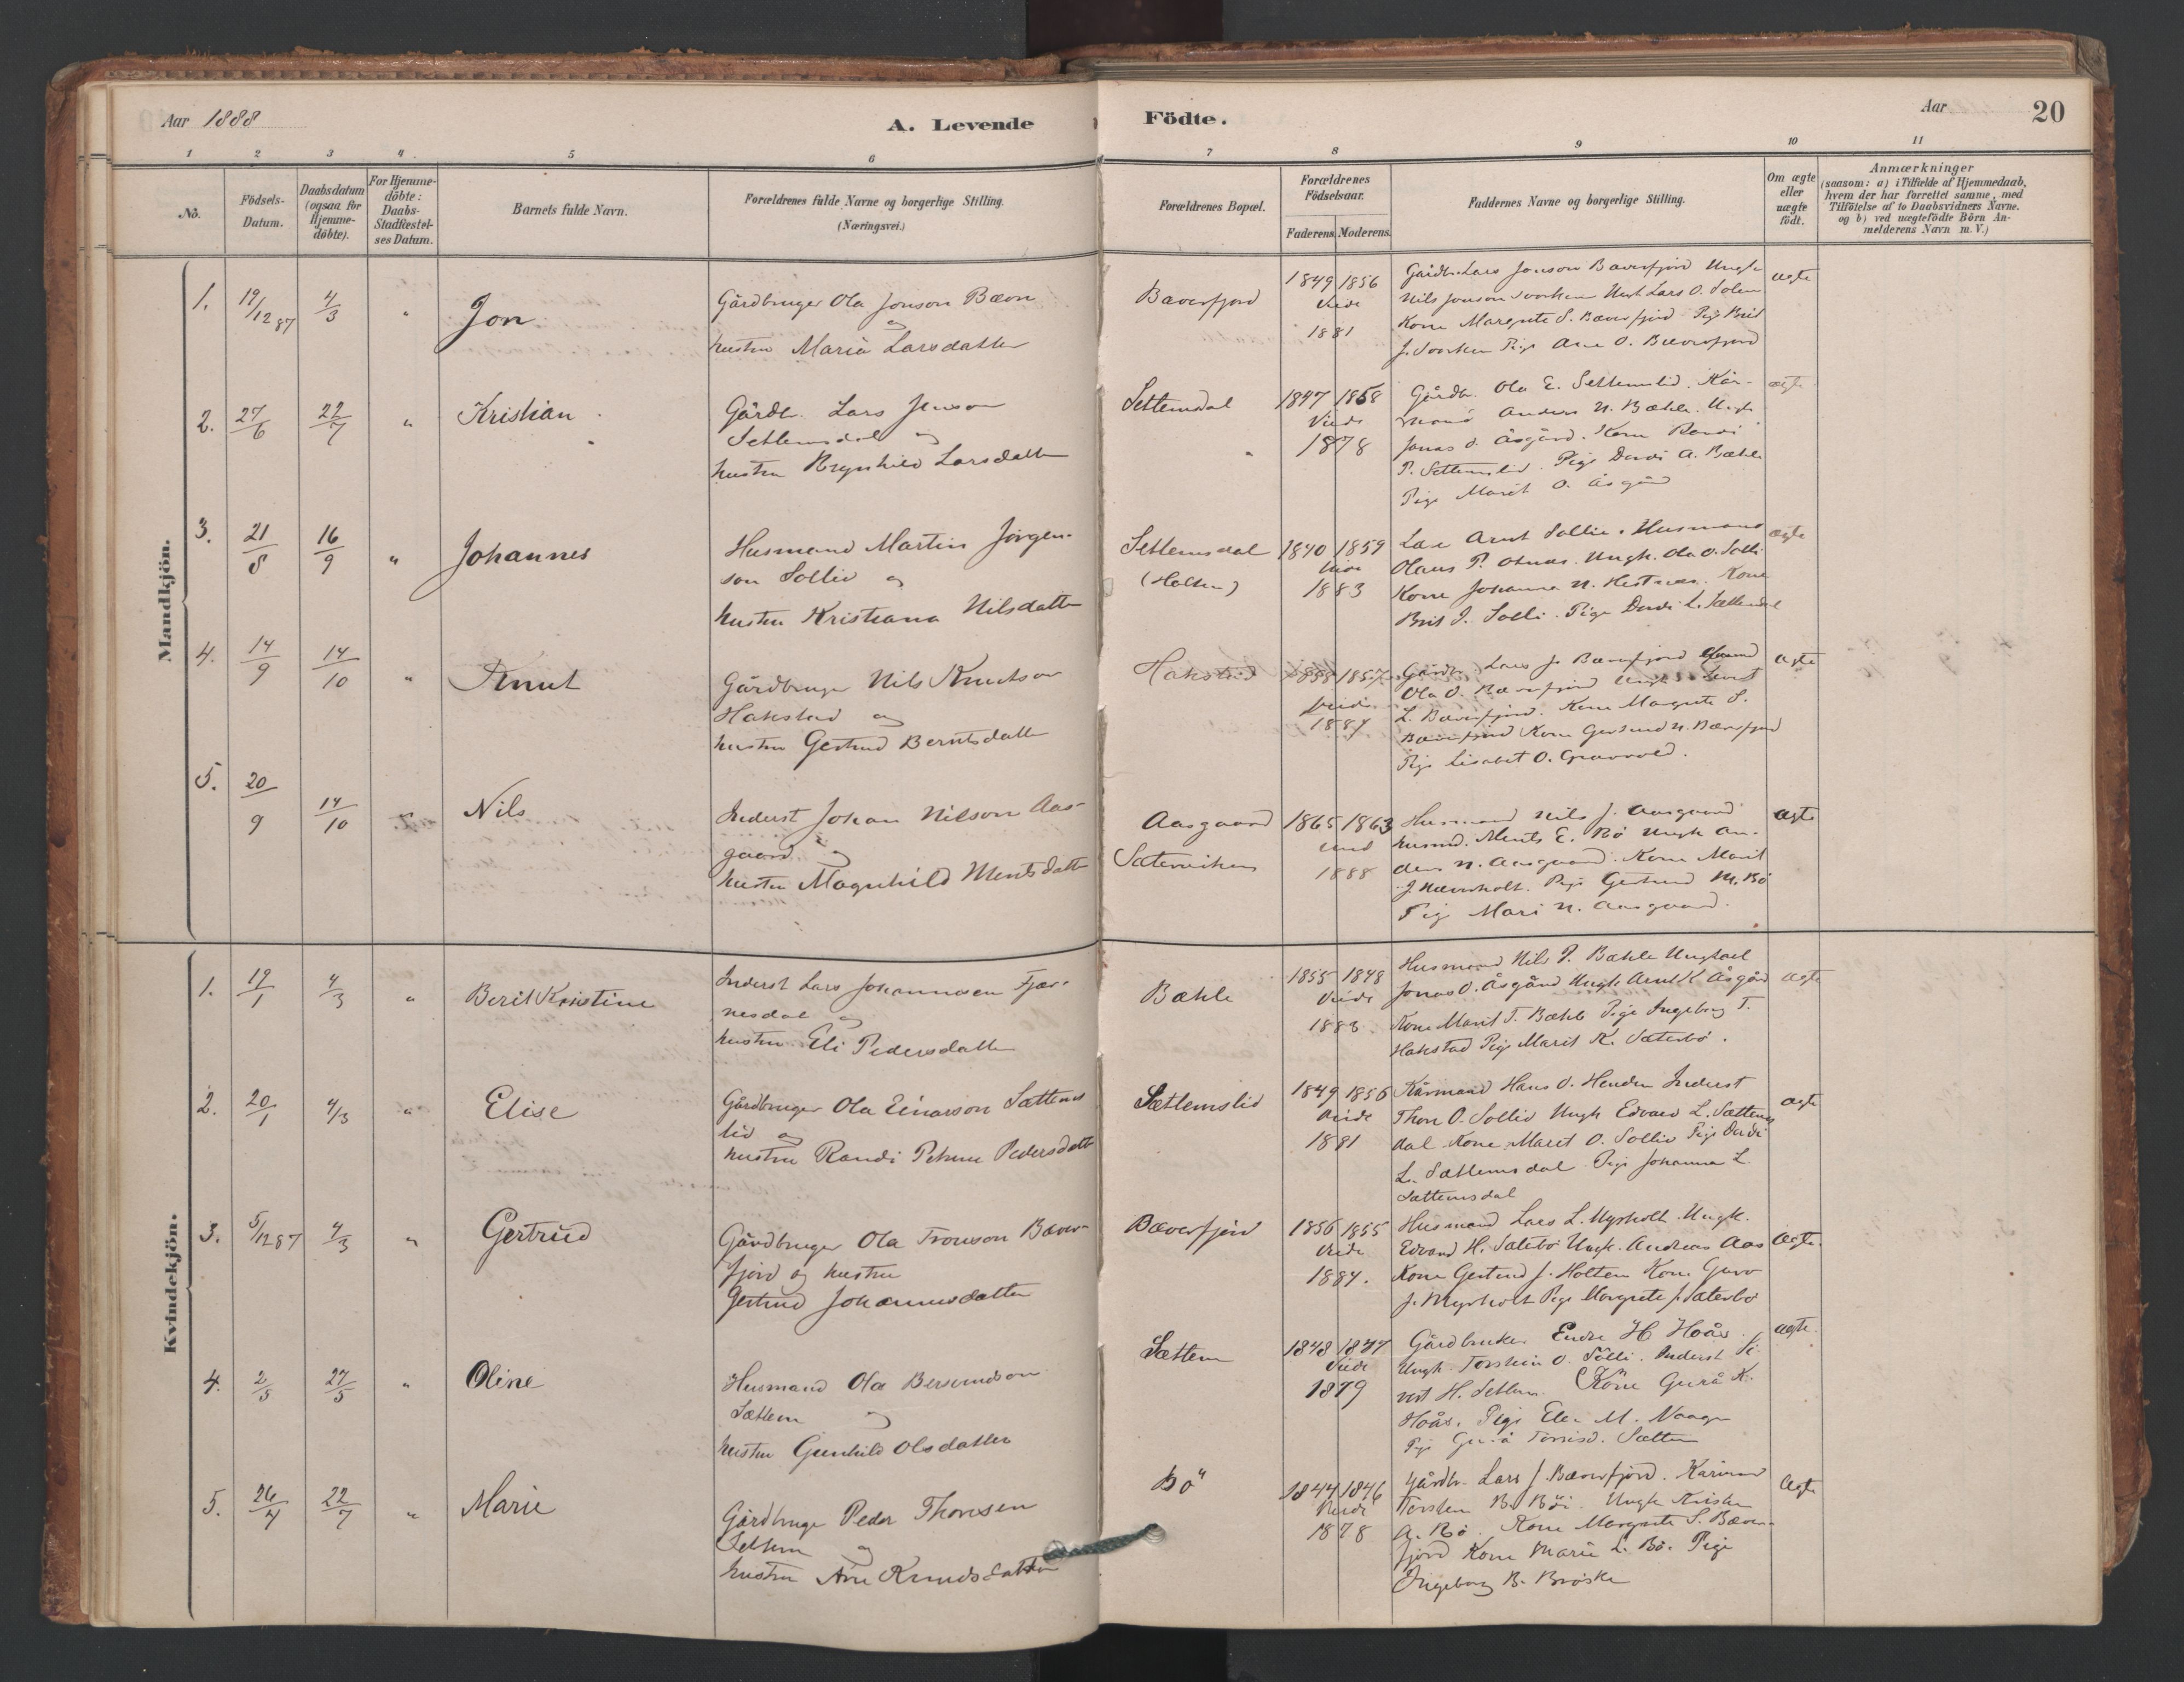 Aar 1888
A. Levende
Födte.
Aar
20
1 2 3 4 5 6 7 8 9 10 11
No.
Födsels-
Datum.
Daabsdatum
(ogsaa for
Hjemme-
döbte).
For Hjemme-
döbte:
Daabs-
Stadfæstel-
ses Datum.
Barnets fulde Navn.
Forældrenes fulde Navne og borgerlige Stilling.
(Næringsvei.)
Forældrenes Bopæl.
Forældrenes
Födselsaar.
Faderens. Moderens.
Faddernes Navne og borgerlige Stilling.
Om ægte
eller
uægte
födt.
Anmærkninger
(saasom: a) i Tilfælde af Hjemmedaab,
hvem der har forrettet samme, med
Tilföielse af to Daabsvidners Navne.
og b) ved uægtefödte Börn An-
melderens Navn m. V.)
Mandkjön.
1. 19/12 87 4/3 " Jon
Gårdbruger Ola Jonson Bævn
og
hustru Maria Larsdatter
Bæverfjord
1849 1856
Viede
1881
Gårdbr. Lars Jonson Bæverfjord Ungk
Nils Jonson Ungk Lars O. Solem
Kone Margrete S. Bæverfjord Pige Brit
J. Pige Ane O. Bæverfjord
ægte
2. 27/6 22/7 " Kristian
Gårdbr. Lars Jenson
Settemsdal og
hustru Regnhild Larsdatter
Settemsdal
1847 1858
Viede
1878
Gårdbr. Ola E. Settemslid. Kår-
mand Anders N. Bæhle. Ungk
Jonas O. Åsgård. Kone Randi
P. Settemslid. Pige Dordi A. Bæhle
Pige Marit O. Åsgård
ægte
3. 21/8 16/9 " Johannes
Husmand Martin Jörgen-
son Sollid og
hustru Kristiana Nilsdatter
Settemsdal
(Holten)
1840 1859
Viede
1883
Arnt Sollie. Husmand
Olaus P. Ungk. Ola O. Solli
Kone Johanna N. Hestnæs. Kone
Brit J. Solli. Pige Dordi L. Settemsdal
ægte
4. 14/9 14/10 " Knut
Gårdbruger Nils Knutson
Hakstad og
hustru Gertrud Berntsdatter
Hakstad
1858 1857
Viede
1887
Gårdbr. Lars J. Bæverfjord
Ola O. Bæverfjord Ungk
L. Bæverfjord. Kone Margrete S.
Bæverfjord Kone Gertrud N. Bæverfjord
Pige Lisabet O. Granvold.
ægte
5. 20/9 14/10 " Nils
Inderst Johan Nilson Aas-
gaard og
hustru Magnhild Mentsdatter
Aasgaard
Sætervikens
1865 1863
1888
Husmand Nils J. Aasgaard
husmd. Ments E. Bö Ungk An-
ders N. Aasgaard. Kone Marit
J. Nævrholt. Pige Gertrud M. Bö
Pige Mari N. Aasgaard.
ægte
Kvindekjön.
1. 19/1 4/3 " Berit Kristine
Inderst Lars Johannesen Fjær-
nesdal og
hustru Eli Pedersdatter
Bæhle
1855 1848
Viede
1883
Husmand Nils P. Bæhle Ungkarl
Jonas O. Åsgård Ungk Arnt K. Åsgård
Kone Marit T. Bæhle Pige Ingeborg T.
Hakstad Pige Marit K. Sæterbö.
ægte
2. 20/1 4/3 " Elise
Gårdbruger Ola Einarson Sættems
lid og
hustru Randi Petrine Pedersdatt
Sættemslid
1849 1856
Viede
1881
Kårmand Hans O. Henden Inderst
Thore O. Sollid Ungk Edvard L. Sættems
dal Kone Marit O. Sollid Pige Dordi
L. Sættemsdal Pige Johanna L.
Sættemsdal
ægte
3. 5/12 87 4/3 " Gertrud
Gårdbruger Ola Tronson Bæver-
fjord og hustru
Gertrud Johannesdatter
Bæverfjord
1856 1855
Viede
1884.
Husmand Lars L. Myrholt Ungk.
Edvard H. Sæterbö Ungk. Andreas Aas
Kone Gertrud J. Holten Kone Guro
J. Myrholt Pige Margrete J. Sæterbö
ægte.
4. 2/5 27/5 " Oline
Husmand Ola Bersundson
Sættem og
hustru Gunhild Olsdatter
Sættem
1843 1847
Viede
1879
Gårdbruker Endre H. Hoås.
Ungk. Torstein O. Solli. Inderst Si-
vert H. Settem Kone Gurå K.
Hoås. Pige Eli M. Vaagen
Pige Gurå Torrisd. Sættem
ægte.
5. 26/4 22/7 " Marie
Gårdbruger Peder Thoresen
Settem og
hustru Ane Knudsdatter
Bö
1844 1846
Viede
1878
Gårdbr. Lars J. Bæverfjord. Kårmand
Torsten B. Bö. Ungk Kristen
A. Bö. Kone Margrete S. Bæver-
fjord Kone Marie L. Bö. Pige
Ingeborg B. Bröske
ægte